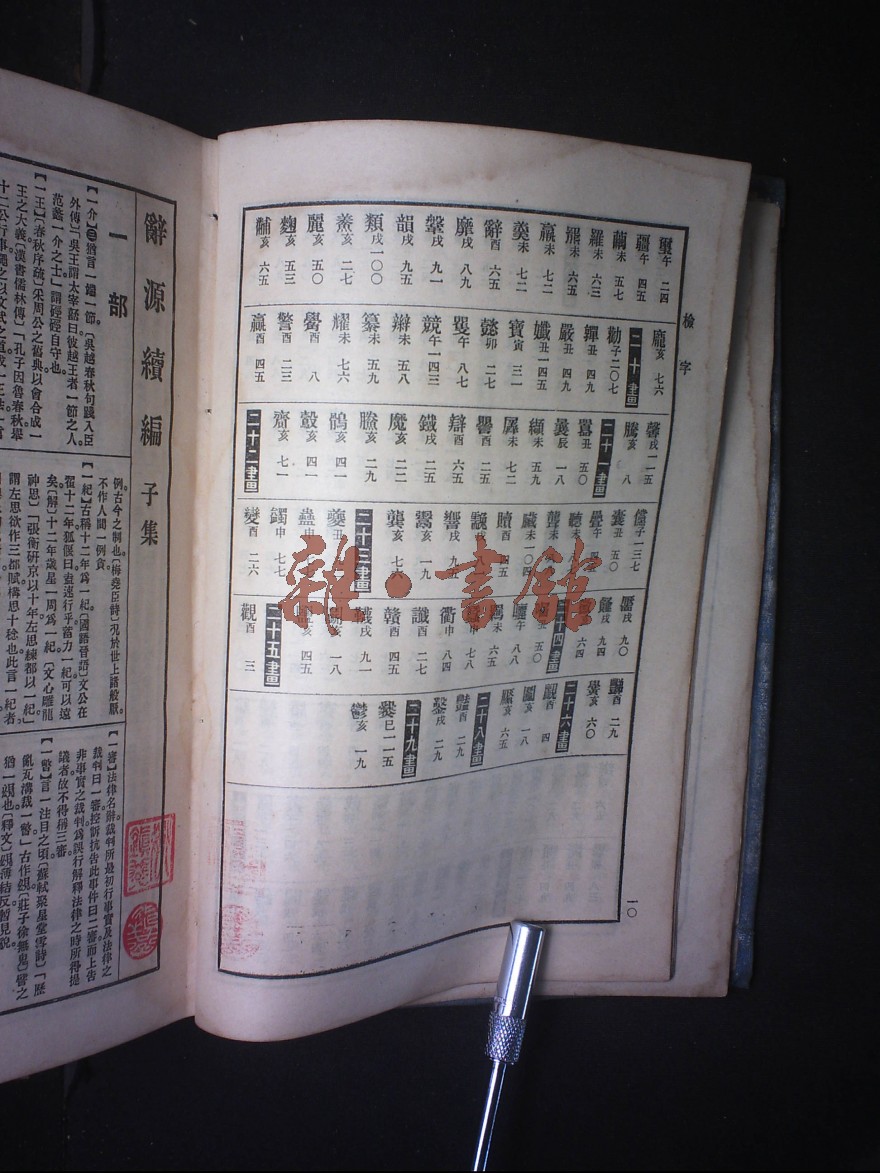 檢字
璽 午 二四
疆 午 四五
繭 未 五七
羅 未 六三
羆 未 六五
羸 未 七二
羹 未 七二
辭 酉 六五
靡 戌 八九
鞶 戌 九一
韻 戌 九五
類 戌 一〇〇
麗 亥 五〇
麴 亥 五三
黼 亥 六五
龐 亥 七六
二十畫
勸 子 二〇七
嚴 丑 四九
孀 丑 一四五
寶 寅 三一
懿 卯 二七
競 午 一四三
辮 未 五八
纂 未 五九
耀 未 七六
觷 酉 八
警 酉 二三
贏 酉 四五
馨 戌 一一五
騰 亥 八
二十一畫
囂 丑 五〇
曩 辰 一八
纈 未 五九
羼 未 七二
譽 酉 二五
辯 酉 六五
鐵 戌 二五
魔 亥 二二
鶻 亥 四一
鷇 亥 四一
齎 亥 七一
二十二畫
儻 子 一三七
囊 丑 五〇
聽 未
贖 酉 四五
響 戌 九五
鬻 亥 一九
龔 亥 七六
二十三畫
夔 丑
蠱 申
鐲 申 七七
變 酉 二六
靨 戌 九〇
二十四畫
衢 申 八四
讖 酉 二七
贛 酉 四五
韈 戌 九一
二十五畫
觀 酉 三
釁 酉 二九
黌 亥 六〇
二十六畫
二十八畫
鑿 戌 二九
二十九畫
爨 巳 一一五
鬱 亥 一九
一〇
雜·書館
辭源續編 子集
一部
【一介】㊁猶言一端一節。〔吳越春秋句踐入臣
外傳〕「吳王謂太宰嚭曰。彼越王者一節之人
范蠡一介之士。」謂硜硜自守也。
【一王】〔春秋序疏〕采周公之舊典以會合成一
王之大義〔漢書儒林傳〕「孔子因魯春秋舉
十二公行事繩之以文武之道成一王法」
例古今之制也〔梅堯臣詩〕况於世上諸般厭
不作人間一例貪
【一紀】古稱十二年爲一紀〔國語晉語〕文公在
翟十二年狐偃曰蓄力一紀可以遠
矣〔解〕十二年歲星一周爲一紀。〔文心雕龍
神思〕「張衡研京以十年左思練都以一紀」
謂左思欲作三都賦構思十稔也此言一紀者
【一審】法律名辭裁判所最初行事實及法律之
裁判曰一審控訴抗告此事件曰二審而上告
非事實之裁判爲誤行解釋法律之時所得提
議者故不得稱三審
【一瞥】言一注目之頃〔蘇軾聚星堂雪詩〕「歷
亂瓦溝裁一瞥」古作𧍝〔莊子徐無鬼〕譬之
猶一𧍝也〔釋文〕𧍝薄結反暫見貌